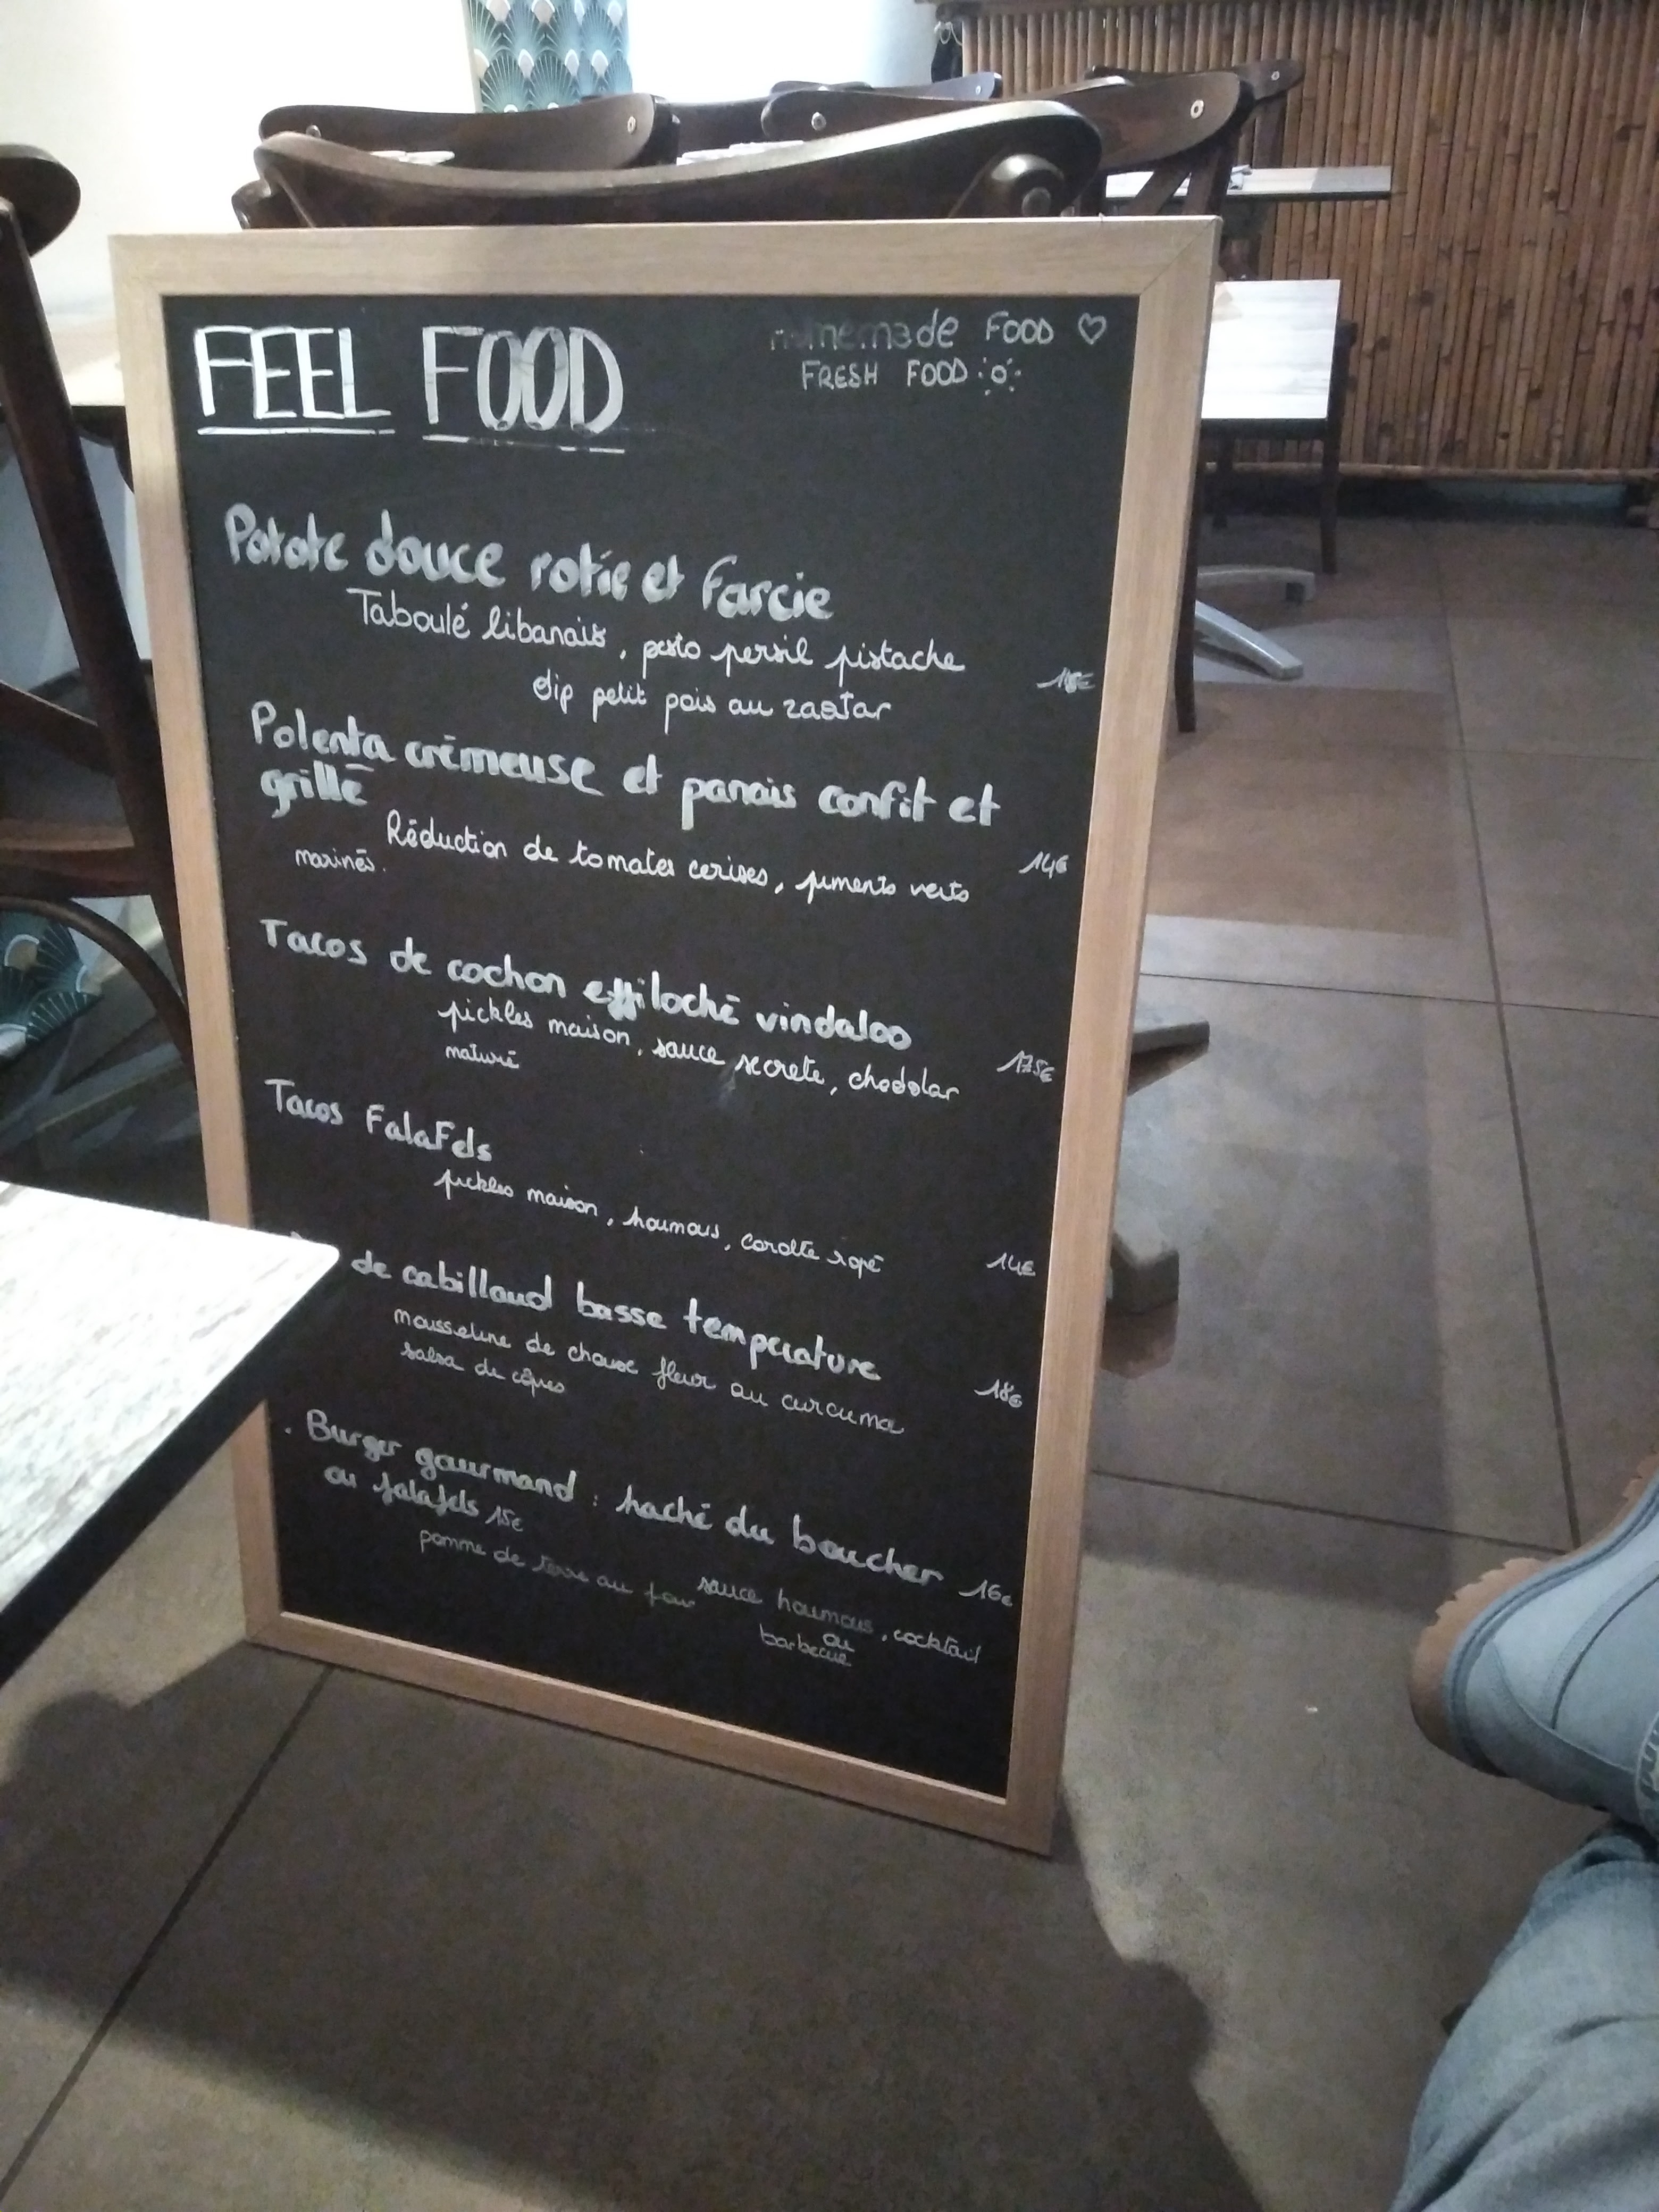 FEEL FOOD
Homemade FOOD ♡
FRESH FOOD
Patate douce rotie et farcie
Taboulé libanais, pesto persil pistache
dip petit pois au zaatar
Polenta crémeuse et panais confit et
grillé
Réduction de tomates cerises, piments verts 14€
marinés.
Tacos de cochon effiloché vindaloo
pickles maison, sauce secrete, cheddar 17.5€
maturé
Tacos Falafels
pickles maison, houmous, carotte rapé 14€
de cabillaud basse temperature
mousseline de choux fleur au curcuma 18€
salsa de câpres
. Burger gourmand : haché du boucher 16€
ou falafels 15€
pomme de terre au four
sauce houmous, cocktail
ou
barbecue